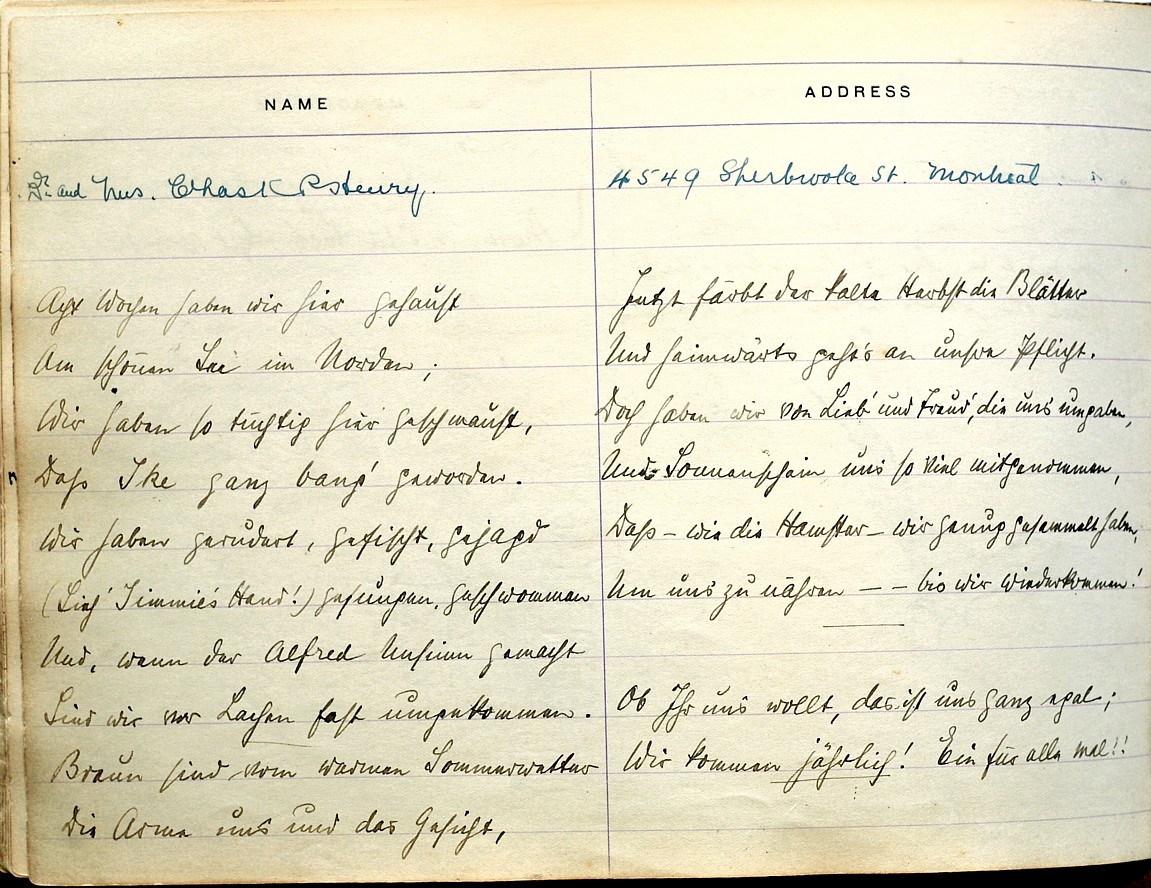 NAME
ADDRESS
Dr. and Mrs. Chas K P Henry.
4549 Sherbrooke St. Montreal.
Acht Wochen haben wir hier gehaust
Am schönen See im Norden;
Wir haben so tüchtig hier geschmaust,
Dass Ike ganz bang' geworden.
Wir haben gerudert, gefischt, gejagd
(Sieh' Jimmie's Hand!) gesungen, geschwommen
Und, wenn der Alfred Unsinn gemacht
Sind wir vor Lachen fast umgekommen.
Braun sind vom warmen Sommerwetter
Die Arme uns und das Gesicht,
Jetzt färbt der kalte Herbst die Blätter
Und heimwärts geht's an unsre Pflicht.
Doch haben wir von Lieb' und Freud', die uns umgaben,
Und Sonnenschein uns so viel mitgenommen,
Dass – wie die Hamster – wir genug gesammelt haben,
Um uns zu nähren – – bis wir wiederkommen!
Ob Ihr uns wollt, das ist uns ganz egal;
Wir kommen jährlich! Ein für alle mal!!